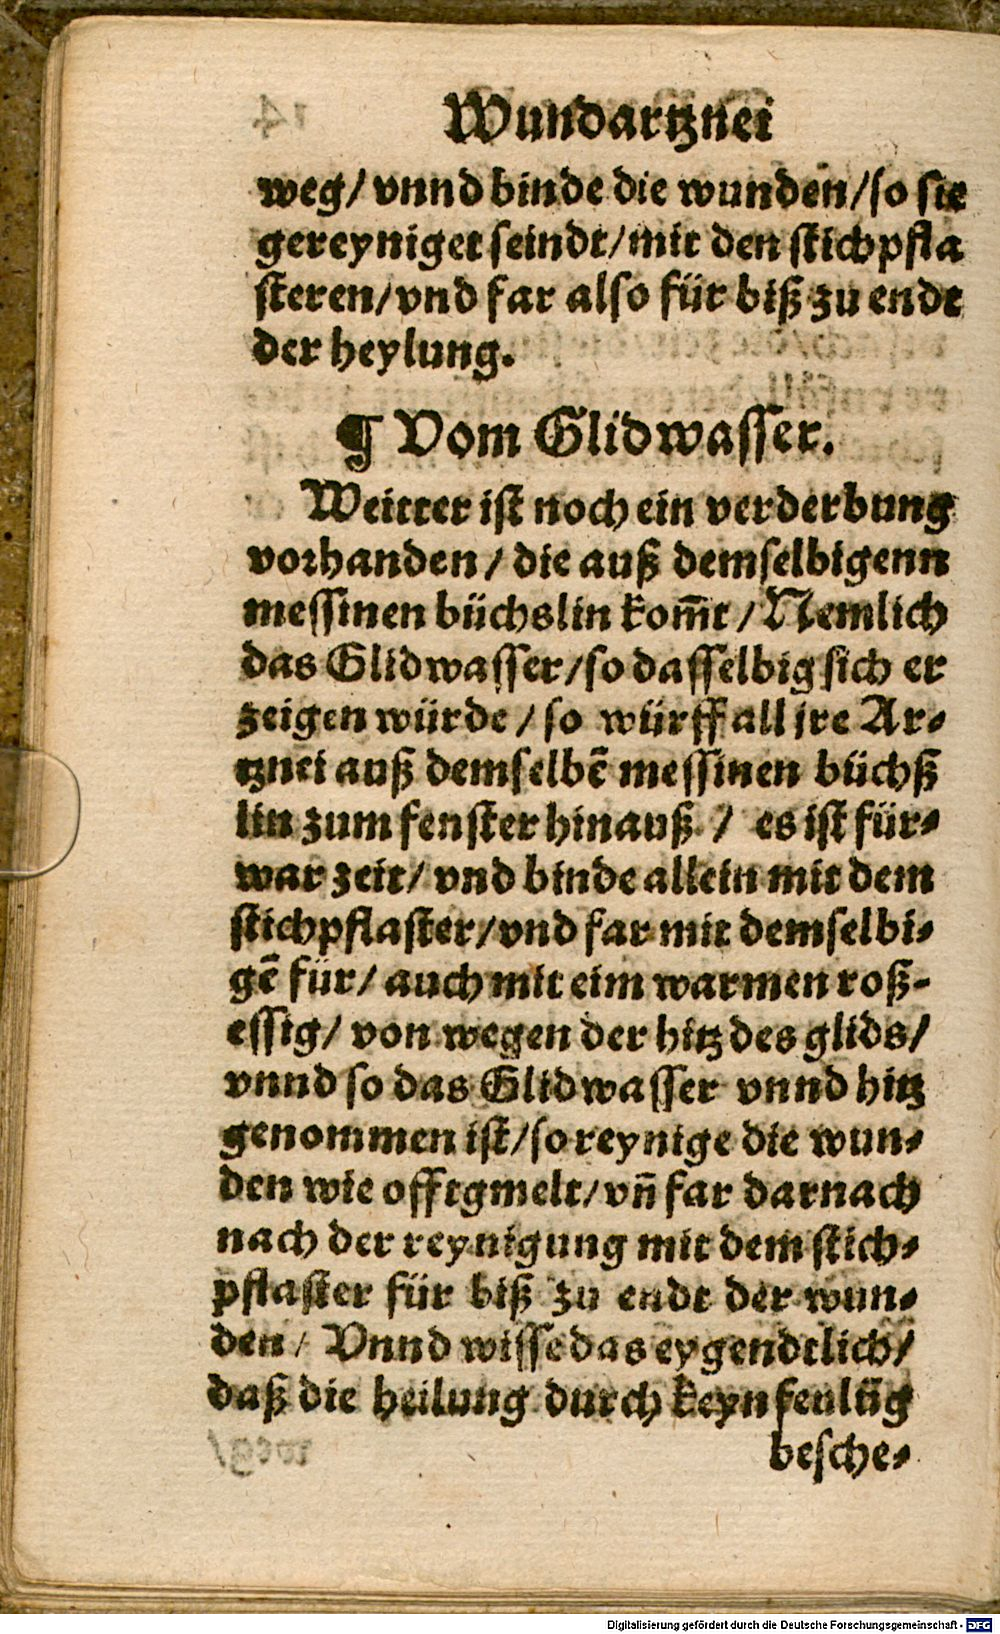 Wundartznei
weg/ vnnd binde die wunden/so sie
gereyniget seindt/mit den stichpfla
steren/vnd far also für biß zu endt
der heylung.
¶ Vom Glidwasser.
Weitter ist noch ein verderbung
vorhanden/ die auß demselbigenn
messinen büchslin kom̃t/ Nemlich
das Glidwasser/so dasselbig sich er
zeigen würde/ so würff all jre Ar⸗
tznei auß demselbẽ messinen büchß
lin zum fenster hinauß / es ist für⸗
war zeit/ vnd binde allein mit dem
stichpflaster/vnd far mit demselbi⸗
gẽ für/ auch mit eim warmen roß-
essig/ von wegen der hitz des glids/
vnnd so das Glidwasser vnnd hitz
genommen ist/so reynige die wun⸗
den wie offtgmelt/vñ far darnach
nach der reynigung mit dem stich⸗
pflaster für biß zu endt der wun⸗
den/ Vnnd wisse das eygendtlich/
daß die heilung durch keyn
besche⸗
Digitalisierung gefördert durch die Deutsche Forschungsgemeinschaft - DFG